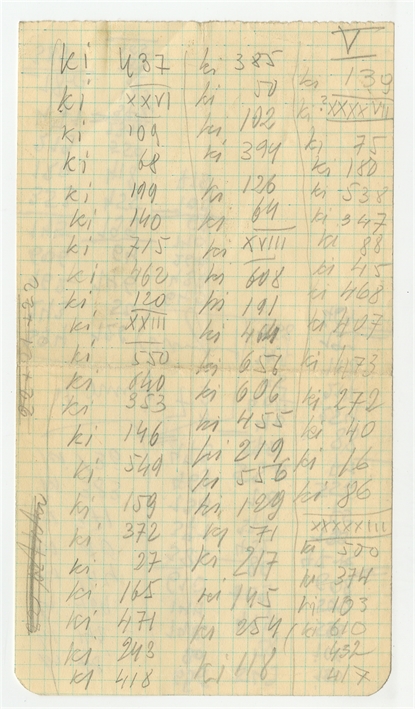 ki 437
ki XXVI
ki 109
ki 68
ki 199
ki 140
ki 715
ki 462
ki 120
ki XXIII
ki 550
ki 640
ki 353
ki 146
ki 549
ki 159
ki 372
ki 27
ki 165
ki 471
ki 243
ki 418
ki 385
ki 50
ki 102
ki 394
ki 126
ki 64
ki XVIII
ki 608
ki 191
ki
ki 656
ki 606
ki 455
ki 219
ki 556
ki 129
ki 71
ki 217
ki 145
ki 254
ki 118
V
ki 139
ki ? XXXXVII
ki 75
ki 180
ki 538
ki 347
ki 88
ki 45
ki 468
ki 407
ki 473
ki 272
ki 40
ki 16
ki 86
XXXXXIII
ki 500
ki 374
ki 103
ki 610
452
417